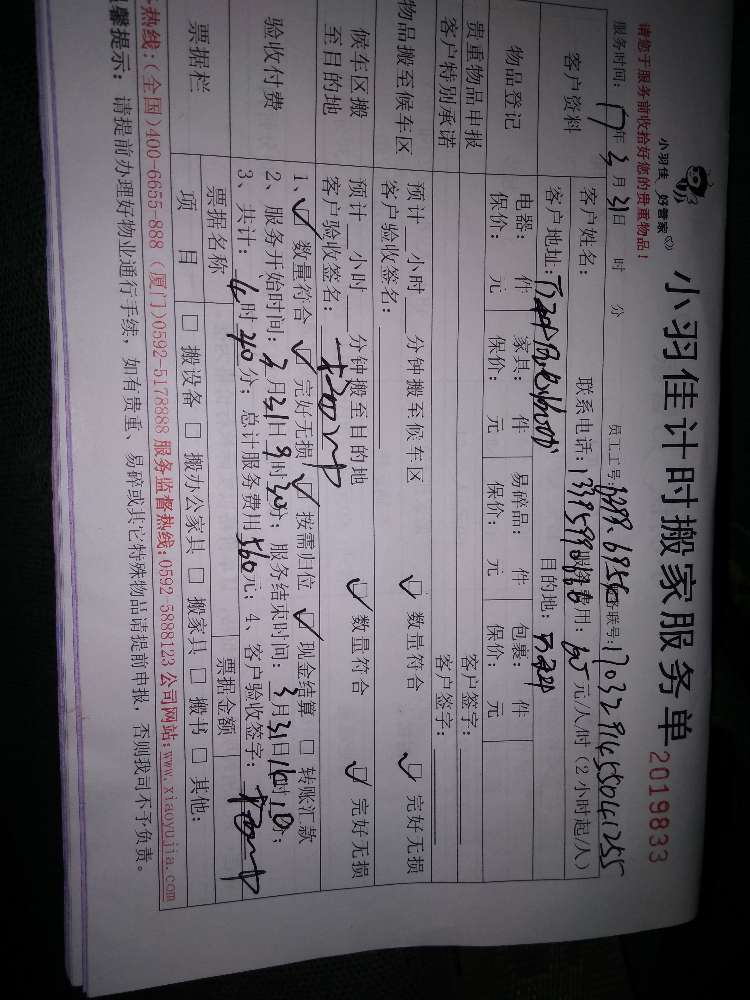 请您于服务前收拾好您的贵重物品！
小羽佳 好管家
小羽佳计时搬家服务单 2019833
服务时间：17年3月31日 时 分 员工工号： 联号：
客户资料
客户姓名： 联系电话： 服务费用： 元/人/时（2小时起/人）
客户地址： 目的地：
物品登记
电器： 件 家具： 件 易碎品： 件 包裹： 件
保价： 元 保价： 元 保价： 元 保价： 元
贵重物品申报 客户签字：
客户特别承诺 客户签字：
物品搬至候车区
预计 小时 分钟搬至候车区 数量符合 完好无损
客户验收签名：
候车区搬至目的地
预计 小时 分钟搬至目的地 数量符合 完好无损
客户验收签名：
验收付费
1、 数量符合 完好无损 按需归位 现金结算 转账汇款
2、服务开始时间：3月31日9时30分；服务结束时间：3月31日16时10分；
3、共计：6时40分；总计服务费用560元；4、客户验收签字：
票据栏
票据名称 票据金额
项目 搬设备 搬办公家具 搬家具 搬书 其他：
热线：（全国）400-6655-888（厦门）0592-5178888 服务监督热线：0592-5888123 公司网站：www.xiaoyujia.com
馨提示：请提前办理好物业通行手续，如有贵重、易碎或其它特殊物品请提前申报，否则我司不予负责。